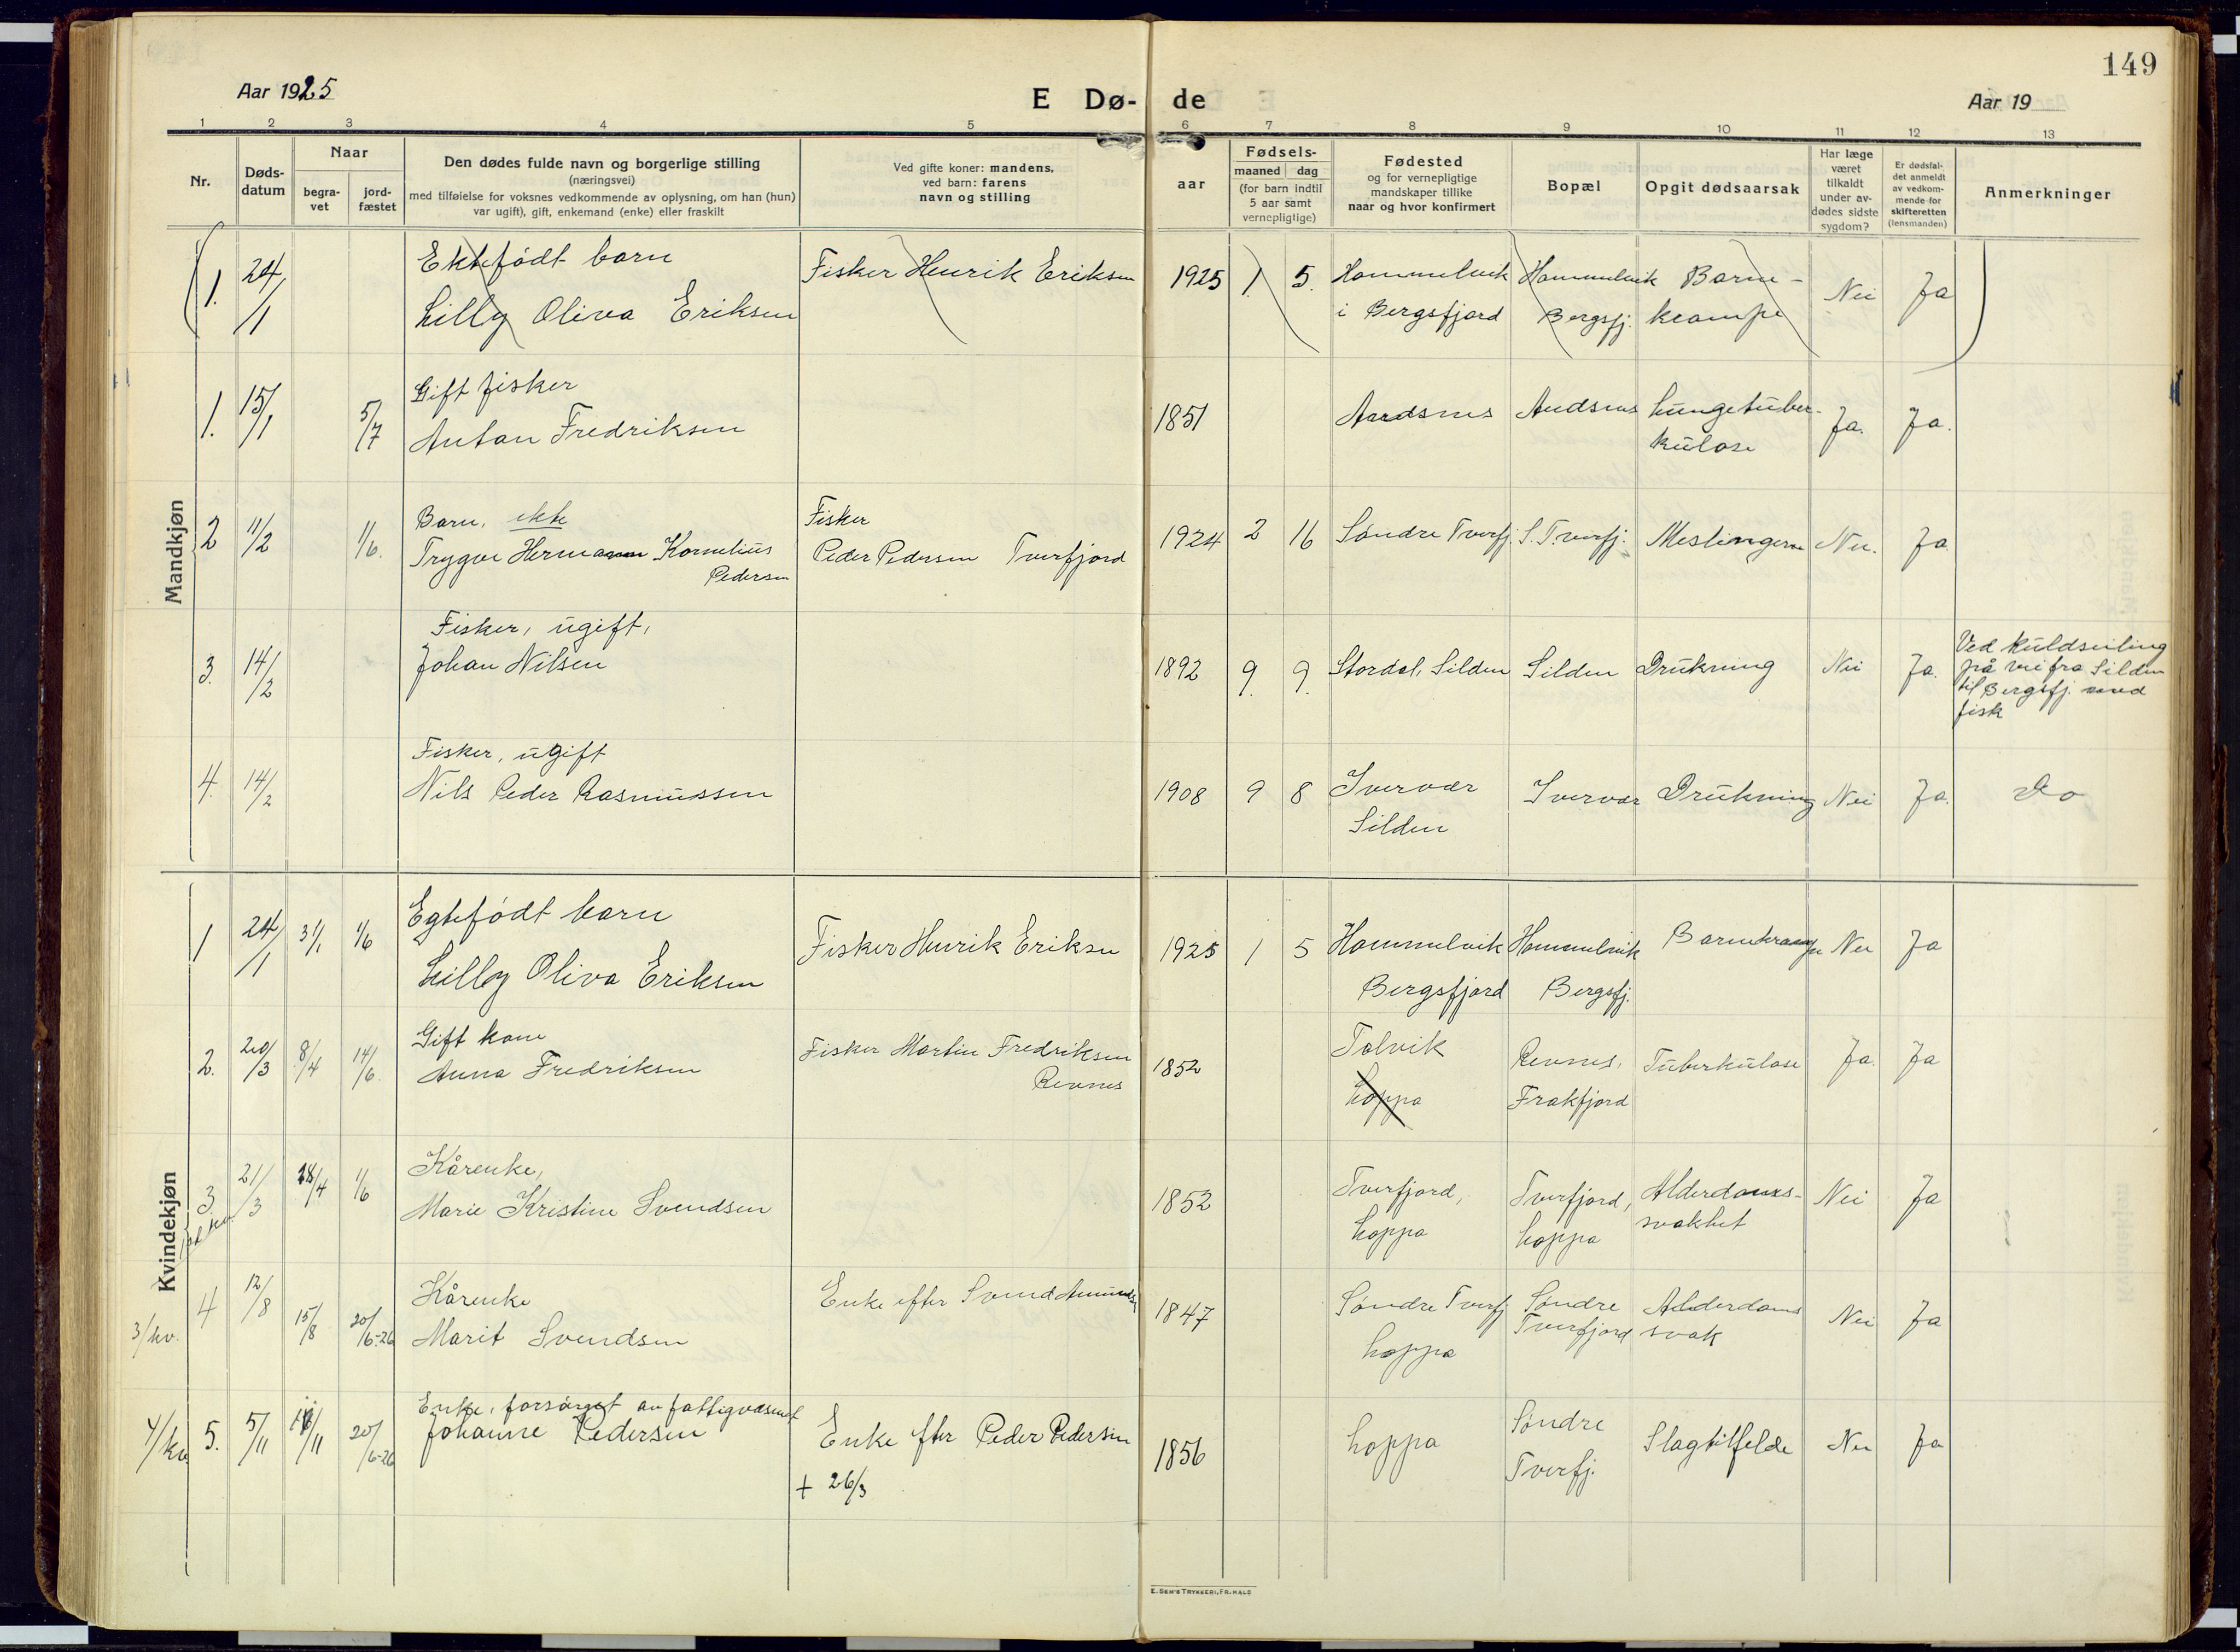 149
Aar 1925
E Dø- de
Aar 19
1 2 3 4 5 6 7 8 9 10 11 12 13
Nr.
Døds-
datum
Naar
begra-
vet
jord-
fæstet
Den dødes fulde navn og borgerlige stilling
(næringsvei)
med tilføielse for voksnes vedkommende av oplysning, om han (hun)
var ugift), gift, enkemand (enke) eller fraskilt
Ved gifte koner: mandens,
ved barn: farens
navn og stilling
aar
Fødsels-
maaned dag
(for barn indtil
5 aar samt
vernepligtige)
Fødested
og for vernepligtige
mandskaper tillike
naar og hvor konfirmert
Bopæl
Opgit dødsaarsak
Har læge
været
tilkaldt
under av-
dødes sidste
sygdom?
Er dødsfal-
det anmeldt
av vedkom-
mende for
skifteretten
(lensmanden)
Anmerkninger
Mandkjøn
1. 24/1
Ektefødt barn
Lilly Oliva Eriksen
Fisker Henrik Eriksen
1925 1. 5.
Hammelvik
i Bergsfjord
Hammelvik
Bergsfj.
Barne-
krampe
Nei Ja
1. 15/1 5/7
Gift fisker
Anton Fredriksen
1851
Audsnes
Audsnes
Lungetuber-
kulose
Ja. Ja.
2 11/2 1/6.
Barn, ekte
Trygve Hermann Kornelius
Pedersen
Fisker
Peder Pedersen Tverfjord
1924 2 16
Søndre Tverfj.
S. Tverfj.
Meslingerne
Nei. Ja.
3. 14/2
Fisker, ugift,
Johan Nilsen
1892 9. 9.
Stordal, Silden
Silden
Drukning
Nei Ja.
Ved kuldseiling
på vei fra Silden
til Bergsfj. med
fisk
4. 14/2
Fisker, ugift
Nils Peder Rasmussen
1908 9 8
Ivervær
Silden
Ivervær
Drukning
Nei Ja.
Do
Kvindekjøn
1 24/1 31/1 1/6
Egtefødt barn
Lilly Oliva Eriksen
Fisker Henrik Eriksen
1925 1 5
Hammelvik
Bergsfjord
Hammelvik
Bergsfj.
Barnekrampe
Nei Ja
2. 20/3 8/4 14/6
Gift kone
Anna Fredriksen
Fisker Martin Fredriksen
Revnes
1852
Talvik
Loppa
Revnes,
Frakfjord
Tuberkulose
Ja. Ja
3. 21/3 28/4 1/6
Kårenke,
Marie Kristine Svendsen
1852
Tverfjord,
Loppa
Tverfjord,
Loppa
Alderdoms-
svakhet
Nei Ja
3/kv.
4 12/8 15/8 20/6-26
Kårenke
Marit Svendsen
Enke efter Svend
1847
Søndre Tverfj
Loppa
Søndre
Tverfjord
Alderdoms
svak
Nei Ja
4/kv
5. 5/11 20/6-26
Enke, forsørget av fattigvæsenet
Johanne Pedersen
Enke efter Peder Pedersen
+ 26/3
1856
Loppa
Søndre
Tverfj.
Slagtilfelde
Nei Ja
E. SEM'S TRYKKERI, FR.HALD